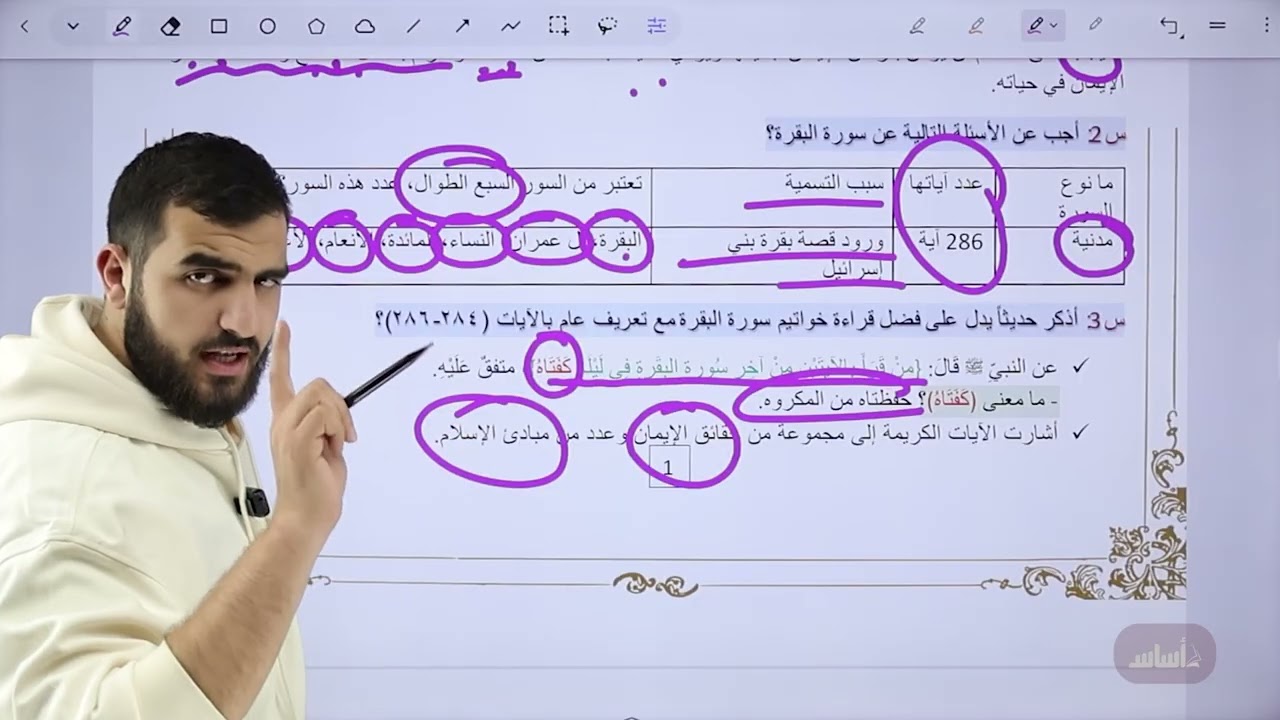 الإيمان في حياته.
س2: أجب عن الأسئلة التالية عن سورة البقرة؟
ما نوع السورة
عدد آياتها
سبب التسمية
تعتبر من السور السبع الطوال، عدد هذه السور؟
مدنية
286 آية
ورود قصة بقرة بني إسرائيل
البقرة، آل عمران، النساء، المائدة، الأنعام،
س3: أذكر حديثاً يدل على فضل قراءة خواتيم سورة البقرة مع تعريف عام بالآيات (٢٨٤-٢٨٦)؟
✓ عن النبيِّ ﷺ قَالَ: {مِنْ قَرَأَ بِالآيَتَيْنِ مِنْ آخِرِ سُورة البقَرة فِي لَيْلَة كَفَتَاهُ} متفقٌ عَلَيْهِ.
- ما معنى (كَفَتَاهُ)؟ حفظتاه من المكروه.
✓ أشارت الآيات الكريمة إلى مجموعة من حقائق الإيمان وعدد من مبادئ الإسلام.
1
أساس